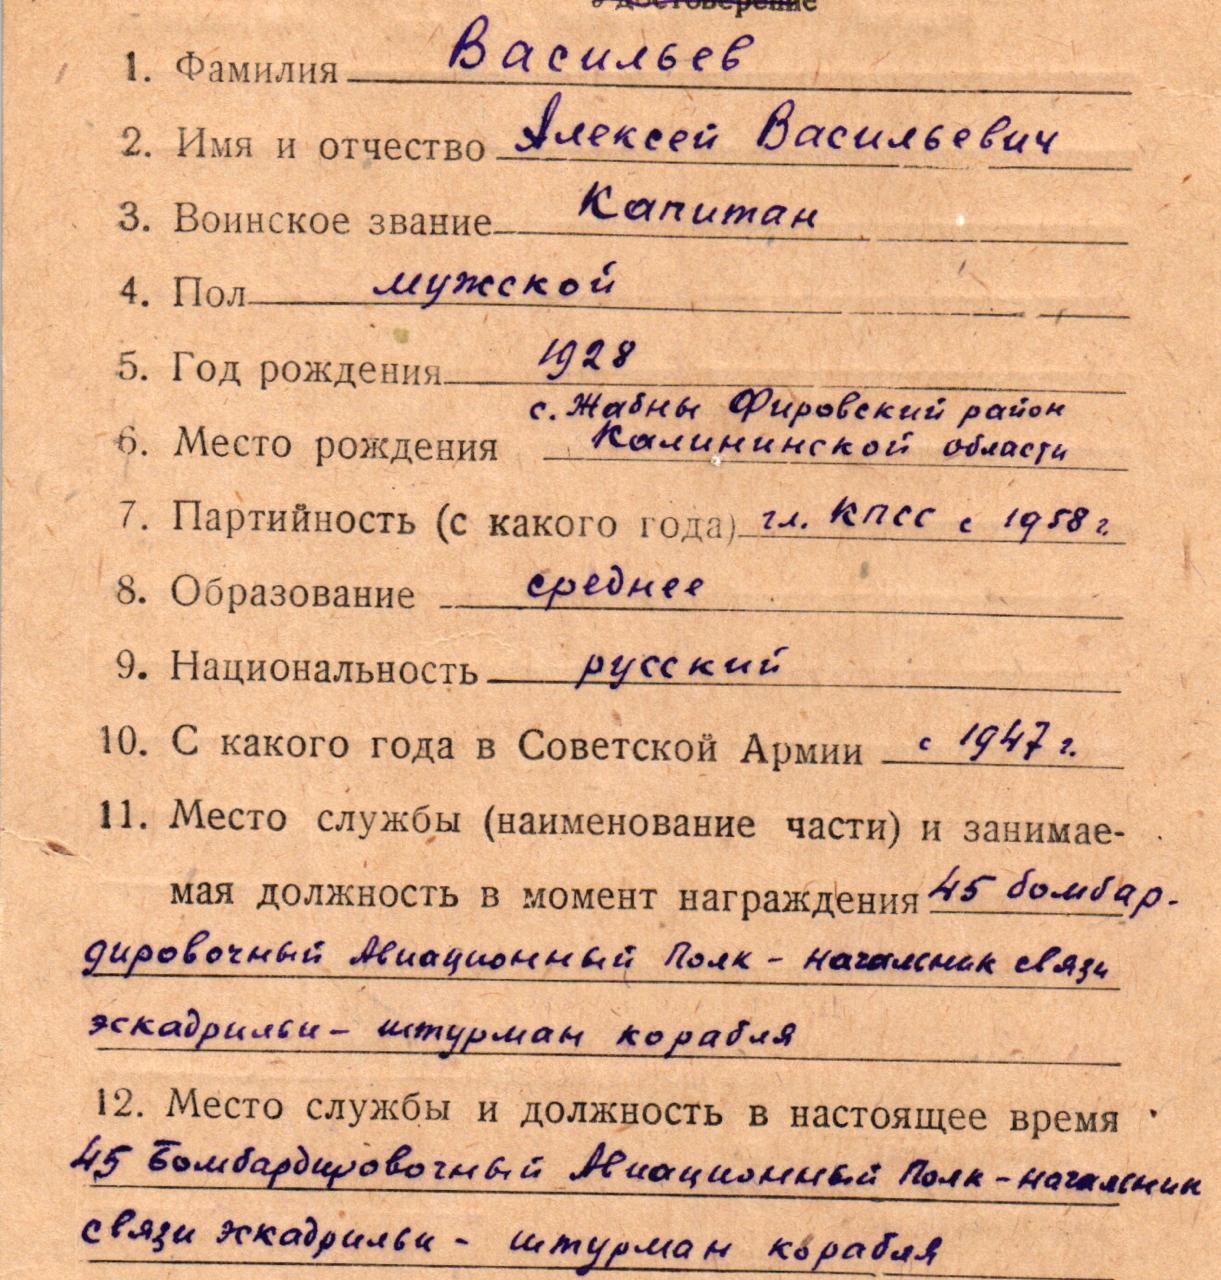 Удостоверение
1. Фамилия Васильев
2. Имя и отчество Алексей Васильевич
3. Воинское звание Капитан
4. Пол мужской
5. Год рождения 1928
с. Жабны Фировский район
6. Место рождения Калининской области
7. Партийность (с какого года) чл. КПСС с 1958 г.
8. Образование среднее
9. Национальность русский
10. С какого года в Советской Армии с 1947 г.
11. Место службы (наименование части) и занимае-
мая должность в момент награждения 45 бомбар-
дировочный Авиационный Полк - начальник связи
эскадрильи - штурман корабля
12. Место службы и должность в настоящее время
45 Бомбардировочный Авиационный Полк - начальник
связи эскадрильи - штурман корабля